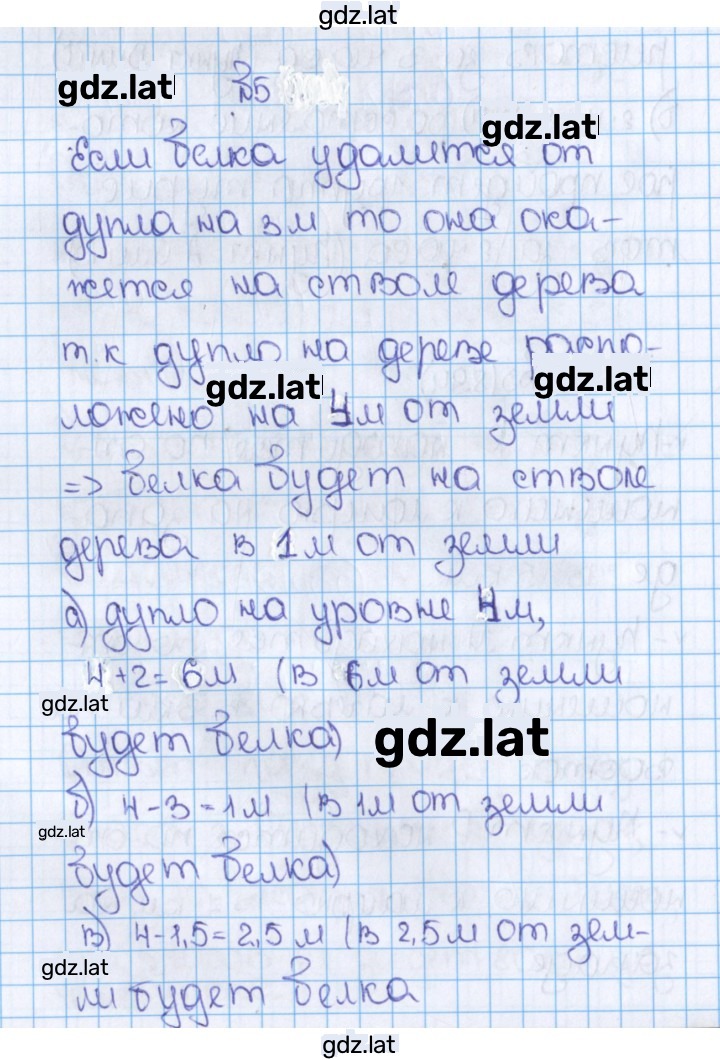 gdz.lat
gdz.lat №5
gdz.lat
Если белка удалится от
дупла на 3м то она ока-
жется на стволе дерева
т.к дупло на дереве распо-
gdz.lat gdz.lat
ложено на 4м от земли
=> белка будет на стволе
дерева в 1м от земли
а) дупло на уровне 4м,
4+2=6м (в 6м от земли
gdz.lat
будет белка) gdz.lat
б) 4-3=1м (в 1м от земли
gdz.lat
будет белка)
в) 4-1,5=2,5м (в 2,5м от зем-
gdz.lat
ли будет белка
gdz.lat